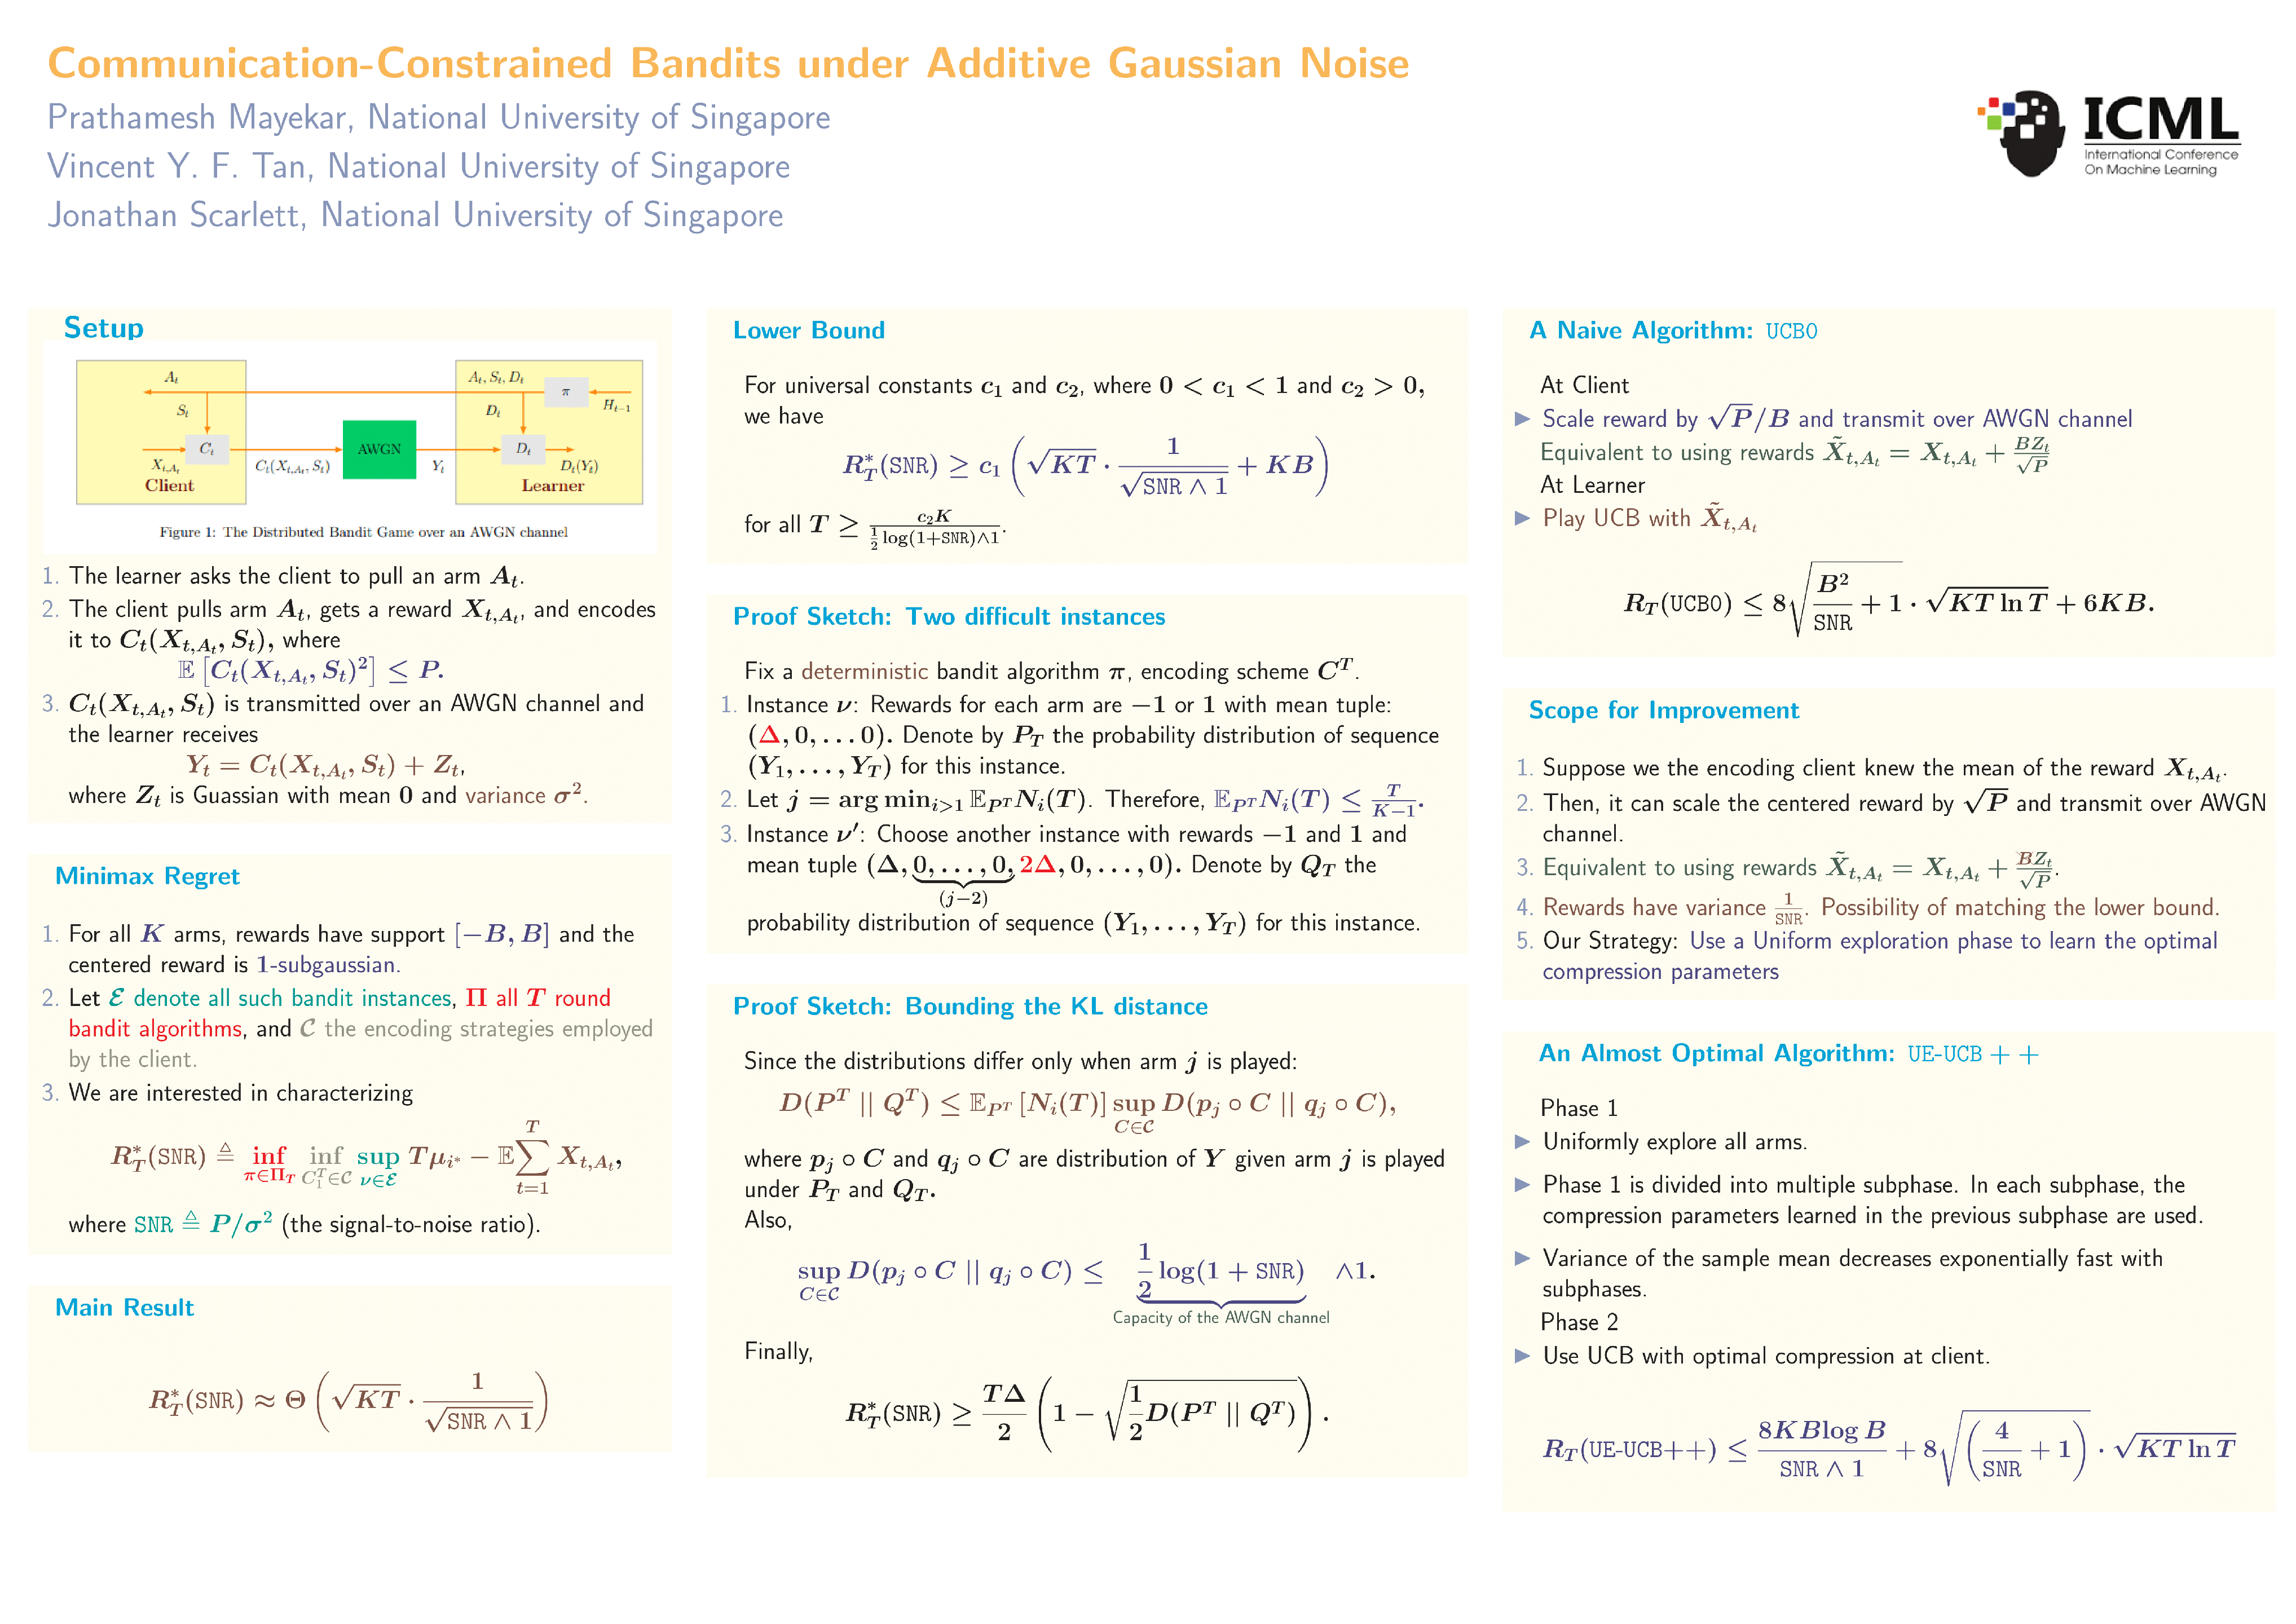 Communication-Constrained Bandits under Additive Gaussian Noise
Prathamesh Mayekar, National University of Singapore
Vincent Y. F. Tan, National University of Singapore
Jonathan Scarlett, National University of Singapore
ICML
International Conference
On Machine Learning
Setup
A_t
S_t
C_t
X_{t,A_t}
Client
C_t(X_{t,A_t}, S_t)
AWGN
Y_t
A_t, S_t, D_t
π
H_{t−1}
D_t
D_t
D_t(Y_t)
Learner
Figure 1: The Distributed Bandit Game over an AWGN channel
1. The learner asks the client to pull an arm A_t.
2. The client pulls arm A_t, gets a reward X_{t,A_t}, and encodes
it to C_t(X_{t,A_t}, S_t), where
𝔼 [C_t(X_{t,A_t}, S_t)²] ≤ P.
3. C_t(X_{t,A_t}, S_t) is transmitted over an AWGN channel and
the learner receives
Y_t = C_t(X_{t,A_t}, S_t) + Z_t,
where Z_t is Guassian with mean 0 and variance σ².
Minimax Regret
1. For all K arms, rewards have support [−B, B] and the
centered reward is 1-subgaussian.
2. Let ℰ denote all such bandit instances, Π all T round
bandit algorithms, and 𝒞 the encoding strategies employed
by the client.
3. We are interested in characterizing
R*_T(SNR) ≜ inf_{π∈Π_T} inf_{C_1^T∈𝒞} sup_{ν∈ℰ} Tμ_{i*} − 𝔼 ∑_{t=1}^{T} X_{t,A_t},
where SNR ≜ P/σ² (the signal-to-noise ratio).
Main Result
R*_T(SNR) ≈ Θ ( √KT · 1/√(SNR ∧ 1) )
Lower Bound
For universal constants c₁ and c₂, where 0 < c₁ < 1 and c₂ > 0,
we have
R*_T(SNR) ≥ c₁ ( √KT · 1/√(SNR ∧ 1) + KB )
for all T ≥ c₂K / (½ log(1+SNR)∧1).
Proof Sketch: Two difficult instances
Fix a deterministic bandit algorithm π, encoding scheme C^T.
1. Instance ν: Rewards for each arm are −1 or 1 with mean tuple:
(Δ, 0, . . . 0). Denote by P_T the probability distribution of sequence
(Y₁, . . . , Y_T) for this instance.
2. Let j = arg min_{i>1} 𝔼_{P^T} N_i(T). Therefore, 𝔼_{P^T} N_i(T) ≤ T/(K−1).
3. Instance ν′: Choose another instance with rewards −1 and 1 and
mean tuple (Δ, 0, . . . , 0, 2Δ, 0, . . . , 0). Denote by Q_T the
(j−2)
probability distribution of sequence (Y₁, . . . , Y_T) for this instance.
Proof Sketch: Bounding the KL distance
Since the distributions differ only when arm j is played:
D(P^T || Q^T) ≤ 𝔼_{P^T} [N_i(T)] sup_{C∈𝒞} D(p_j ∘ C || q_j ∘ C),
where p_j ∘ C and q_j ∘ C are distribution of Y given arm j is played
under P_T and Q_T.
Also,
sup_{C∈𝒞} D(p_j ∘ C || q_j ∘ C) ≤ ½ log(1 + SNR) ∧1.
Capacity of the AWGN channel
Finally,
R*_T(SNR) ≥ TΔ/2 ( 1 − √(½ D(P^T || Q^T)) ).
A Naive Algorithm: UCB0
At Client
▶ Scale reward by √P/B and transmit over AWGN channel
Equivalent to using rewards X̃_{t,A_t} = X_{t,A_t} + BZ_t/√P
At Learner
▶ Play UCB with X̃_{t,A_t}
R_T(UCB0) ≤ 8√(B²/SNR + 1) · √(KT ln T) + 6KB.
Scope for Improvement
1. Suppose we the encoding client knew the mean of the reward X_{t,A_t}.
2. Then, it can scale the centered reward by √P and transmit over AWGN
channel.
3. Equivalent to using rewards X̃_{t,A_t} = X_{t,A_t} + BZ_t/√P.
4. Rewards have variance 1/SNR. Possibility of matching the lower bound.
5. Our Strategy: Use a Uniform exploration phase to learn the optimal
compression parameters
An Almost Optimal Algorithm: UE-UCB + +
Phase 1
▶ Uniformly explore all arms.
▶ Phase 1 is divided into multiple subphase. In each subphase, the
compression parameters learned in the previous subphase are used.
▶ Variance of the sample mean decreases exponentially fast with
subphases.
Phase 2
▶ Use UCB with optimal compression at client.
R_T(UE-UCB++) ≤ 8KB log B/(SNR ∧ 1) + 8√((4/SNR + 1)) · √(KT ln T)